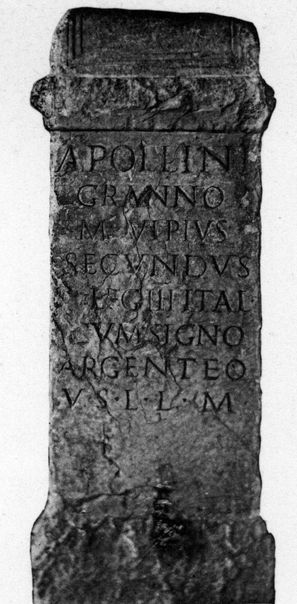 APOLLINI
GRANNO
M VLPIVS
SECVNDVS
LEG III ITAL
CVM SIGNO
ARGENTEO
V S · L · L · M